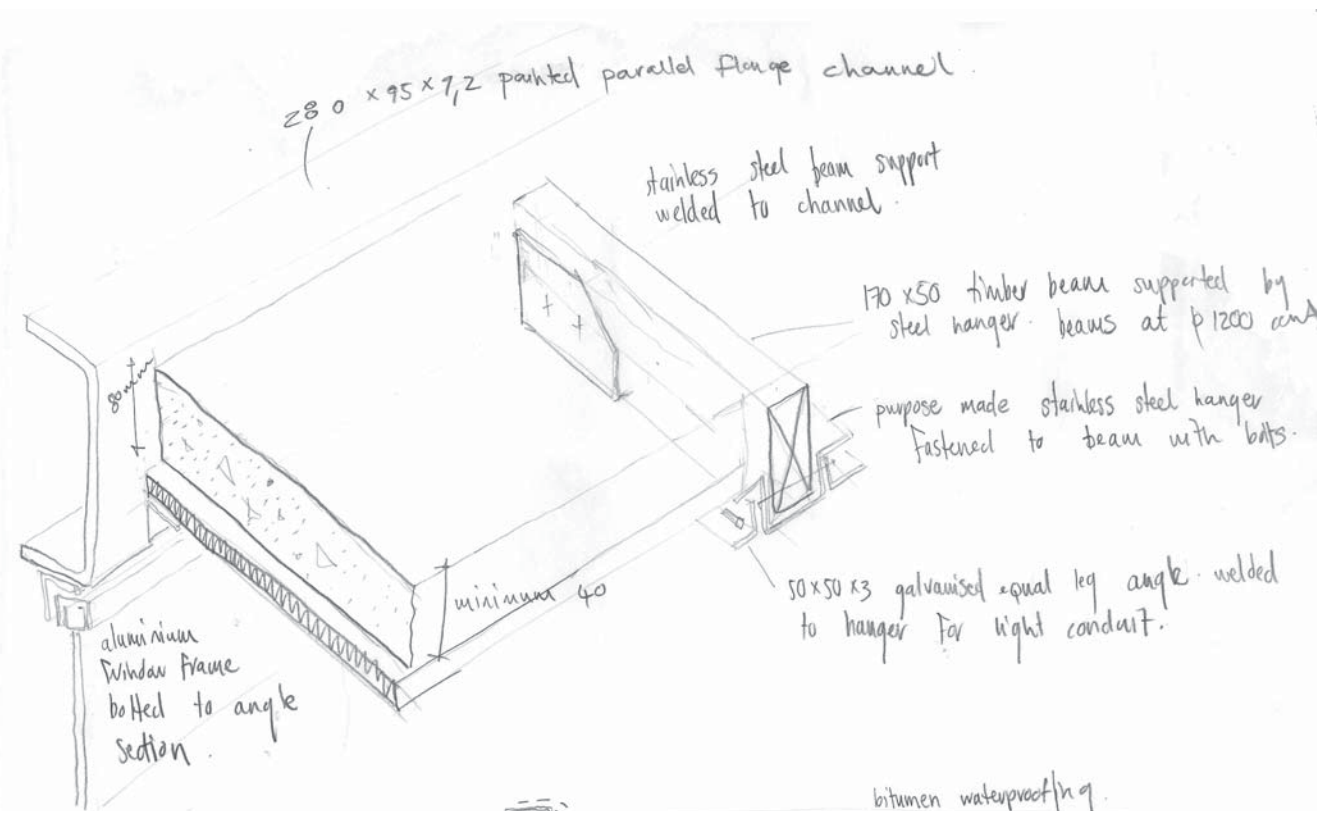 280 x 95 x 9,2 painted parallel flange channel.
stainless steel beam support
welded to channel.
170 x50 timber beam supported by
steel hanger. beams at 1200
purpose made stainless steel hanger
fastened to beam with bolts.
50 x 50 x3 galvanised equal leg angle. welded
to hanger for light conduit.
80mm
minimum 40
aluminium
window frame
bolted to angle
section.
bitumen waterproofing.